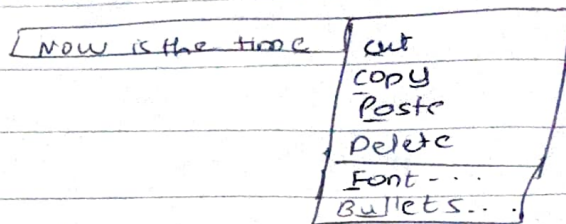 Now is the time
cut
copy
Paste
Delete
Font - . .
Bullets . . .